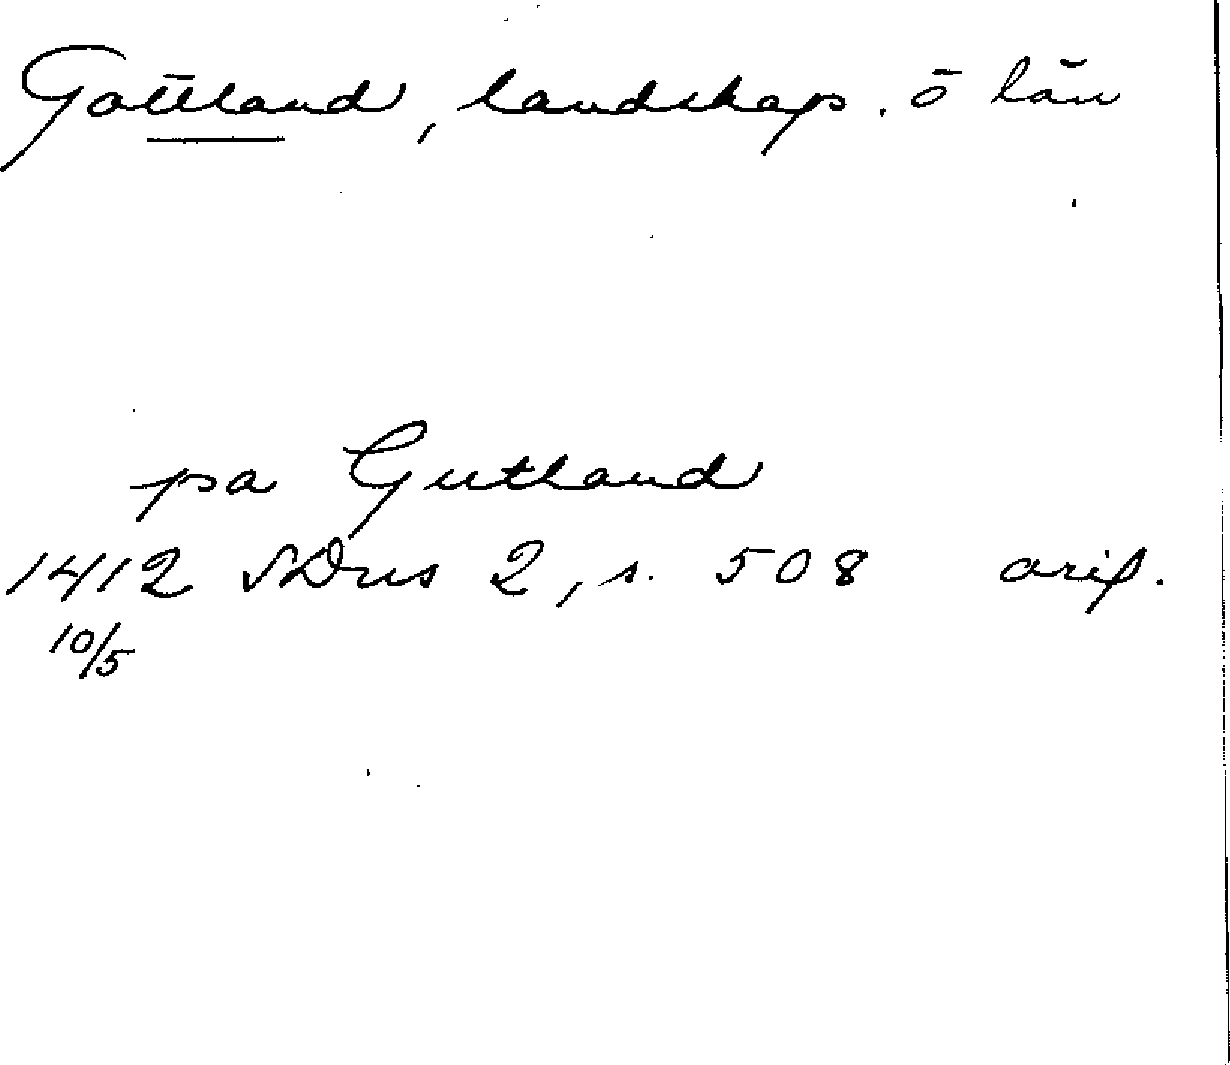 Gottland, landskap. ö län
pa Gutland
1412 SDns 2, s. 508 avskr.
10/5